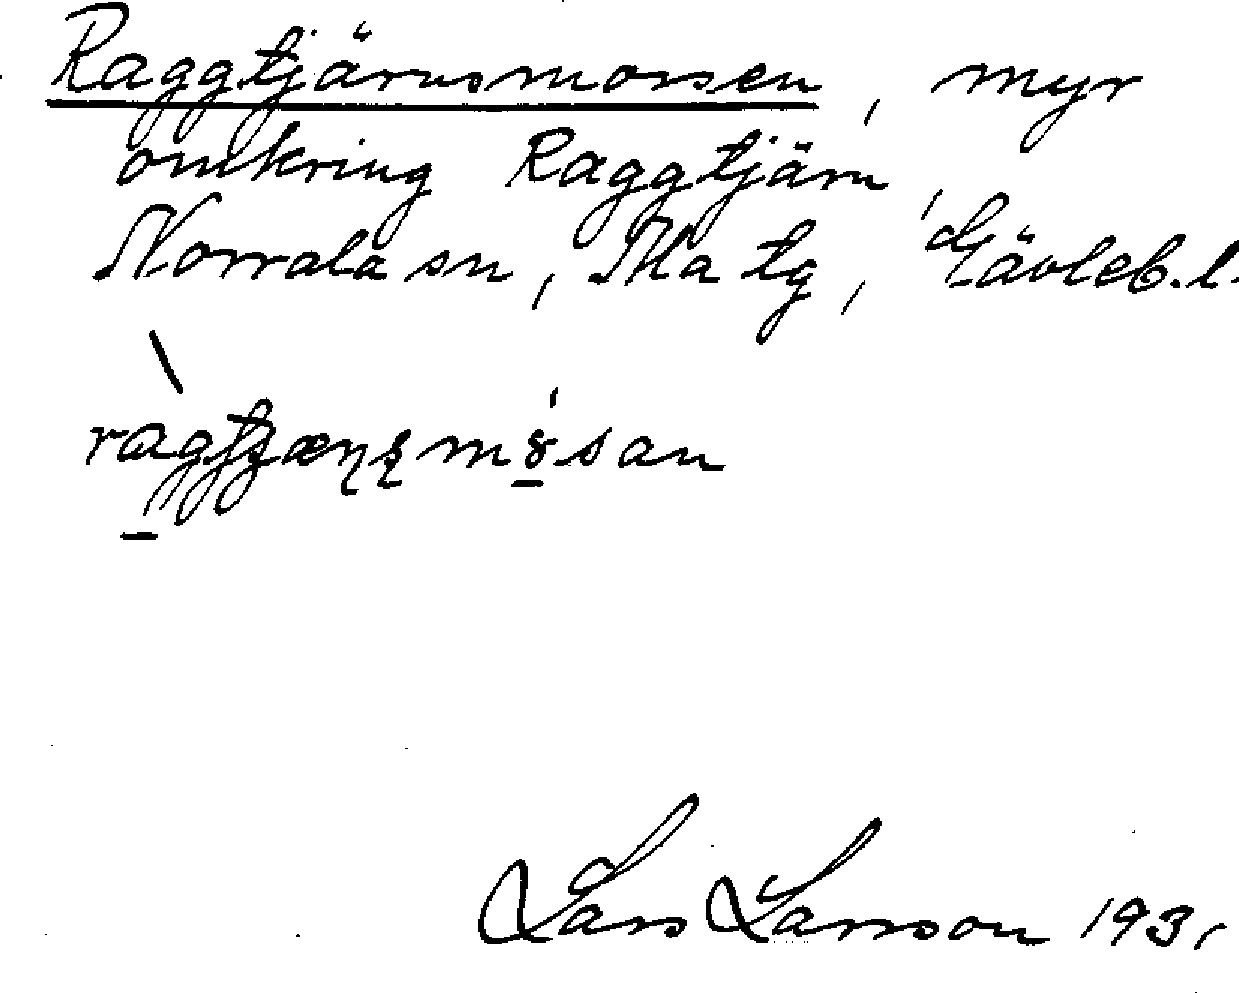 Raggtjärnsmorsen, myr
omkring Raggtjärn,
Norrala sn, Ala tg, Gävleb. l.
Lars Larsson 193